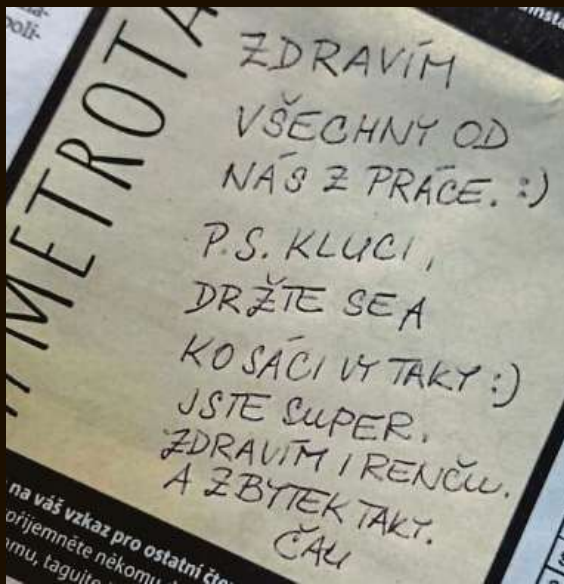 # METROTA
ZDRAVÍM
VŠECHNY OD
NÁS Z PRÁCE. :)
P.S. KLUCI,
DRŽTE SE A
KOSÁCI VY TAKY :)
JSTE SUPER.
ZDRAVÍM I RENČU.
A ZBYTEK TAKY.
ČAU
na váš vzkaz pro ostatní čte
příjemněte někomu
omu, tagujte